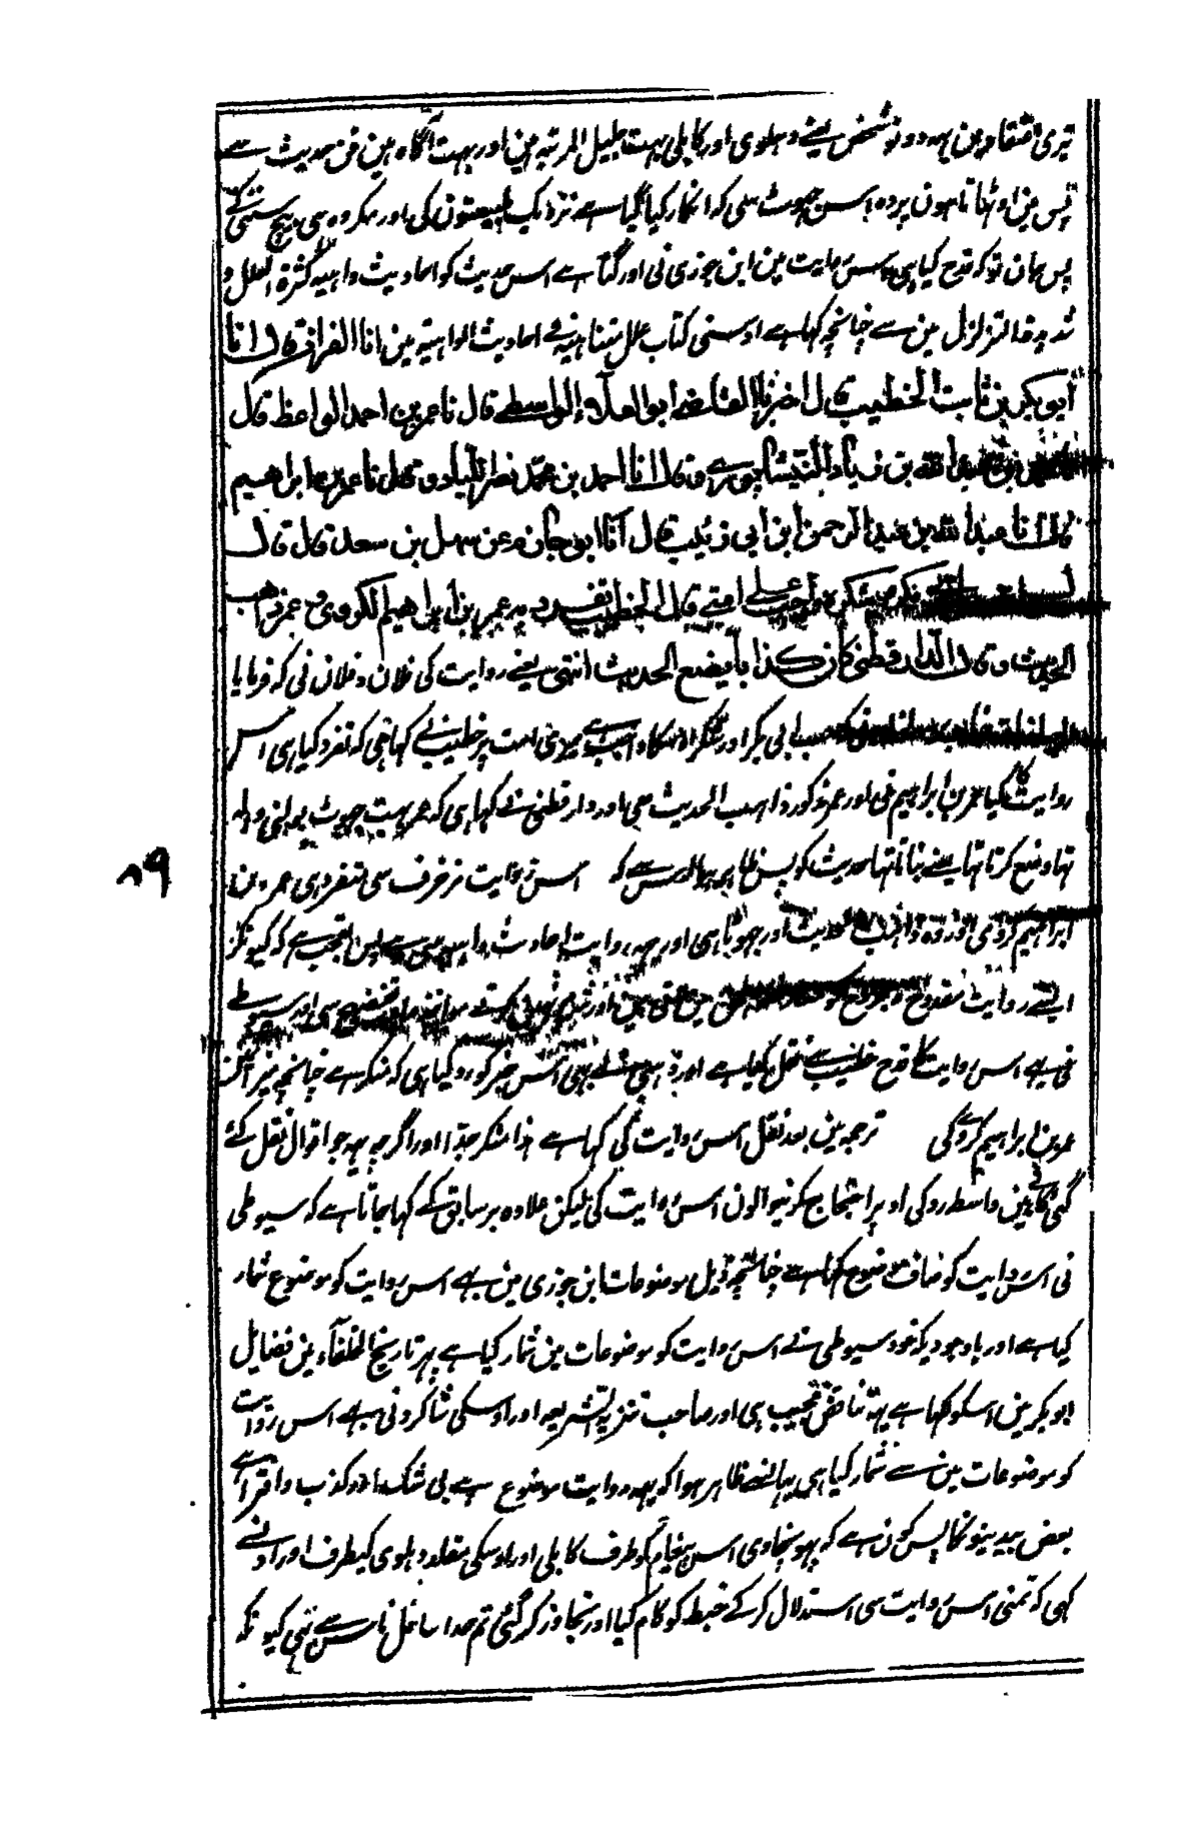 تیری اعتقاد مین یہہ دونو شخص یعنے دہلوی اور کابلی بہت جلیل المرتبہ ہین اور بہت آگاہ ہین فن حدیث سے
پس مین اوٹھاتا ہون پردہ اس جھوٹ سی کہ انکار کیا گیا ہے نزدیک طبیعتون کی اور مکروہ ہی بیچ سننی کے
پس جان تو کہ قدح کیا ہی اس روایت مین ابن جوزی نی اور گنا ہے اس حدیث کو احادیث واہیہ کثیرۃ العلل و
شدیدۃ التزلزل مین سے چنانچہ کہا ہے اوسنی کتاب علل متناہیہ فی احادیث الواہیہ مین انا القزاز قال انا
أبو بکر بن ثابت الخطیب قال اخبرنا القاضے ابو العلاء الواسطے قال نا عمر بن احمد الواعظ قال
عبد اللہ بن زیاد النیشاپورے وقال انا احمد بن محمد نصر اللباد قال نا عمر بن ابراھیم
قال انا عبد اللہ بن عبد الرحمن ابن ابی ذئب قال انا ابو حازم عن سھل بن سعد قال قال
بکر و شکرہ واجب علے امتے قال الخطیب تفرد بہ عمر بن ابراھیم الکردی و عمر ذاھب
الحدیث وقال الدارقطنی کان کذابا یضع الحدیث انتہی یعنے روایت کی فلان و فلان نی کہ فرمایا
ابی بکر اور شکر اوسکا واجب ہے میری امت پر خطیب نے کہا ہی کہ تفرد کیا ہی اس
روایت کا عمر بن ابراہیم نی اور عمر مذکور ذاہب الحدیث ہی اور دارقطنی نے کہا ہی کہ عمر بہت جھوٹ بولنی والہ
تہا وضع کرتا تہا یعنے بناتا تہا حدیث کو پس ظاہر ہوا اس سے کہ اس روایت مزخرف سی متفرد ہی عمر بن
ابراہیم کردی اور وہ ذاہب الحدیث اور جھوٹا ہی اور یہہ روایت احادیث واہیہ سی ہے پس تعجب ہے کہ کیونکر
ایسے روایت مقدوح و مجروح کو
نی ہے اس روایت کا قدح خطیب سے نقل کیا ہے اور ذہبی نے بہی اس خبر کو رد کیا ہی کہ منکر ہے چنانچہ میزان مین
عمر بن ابراہیم کردے کی ترجمہ مین بعد نقل اس روایت کی کہا ہے ہذا منکر جدا اور اگرچہ یہہ جو اقوال نقل کئے
گئی کافی ہین واسطے رد کی اوپر احتجاج کرنیوالون اس روایت کی لیکن علاوہ بر سابق کے کہا جاتا ہے کہ سیوطی
نی اس روایت کو صاف موضوع کہا ہے چنانچہ ذیل موضوعات ابن جوزی مین ہے اس روایت کو موضوع شمار
کیا ہے اور باوجودیکہ خود سیوطی نے اس روایت کو موضوعات مین شمار کیا ہے پہر تاریخ الخلفاء مین فضایل
ابو بکر مین اسکو لکہا ہے یہہ تناقض عجیب ہی اور صاحب تنزیہ الشریعہ اور اوسکی شاگرد نی بہے اس روایت
کو موضوعات مین سے شمار کیا ہی یہانسے ظاہر ہوا کہ یہہ روایت موضوع ہے بی شک اور کذب و افترا ہے
بعض بیدینونکا پس کون ہے کہ پہونچاوی اس پیغام کو طرف کابلی اور اوسکی مقلد دہلوی کیطرف اور اونسے
کہی کہ تمنی اس روایت سی استدلال کرکے خبط کو کام کیا اور تجاوز کر گئی تم حد اسافل ناس سے بہی کیونکہ
۸۹